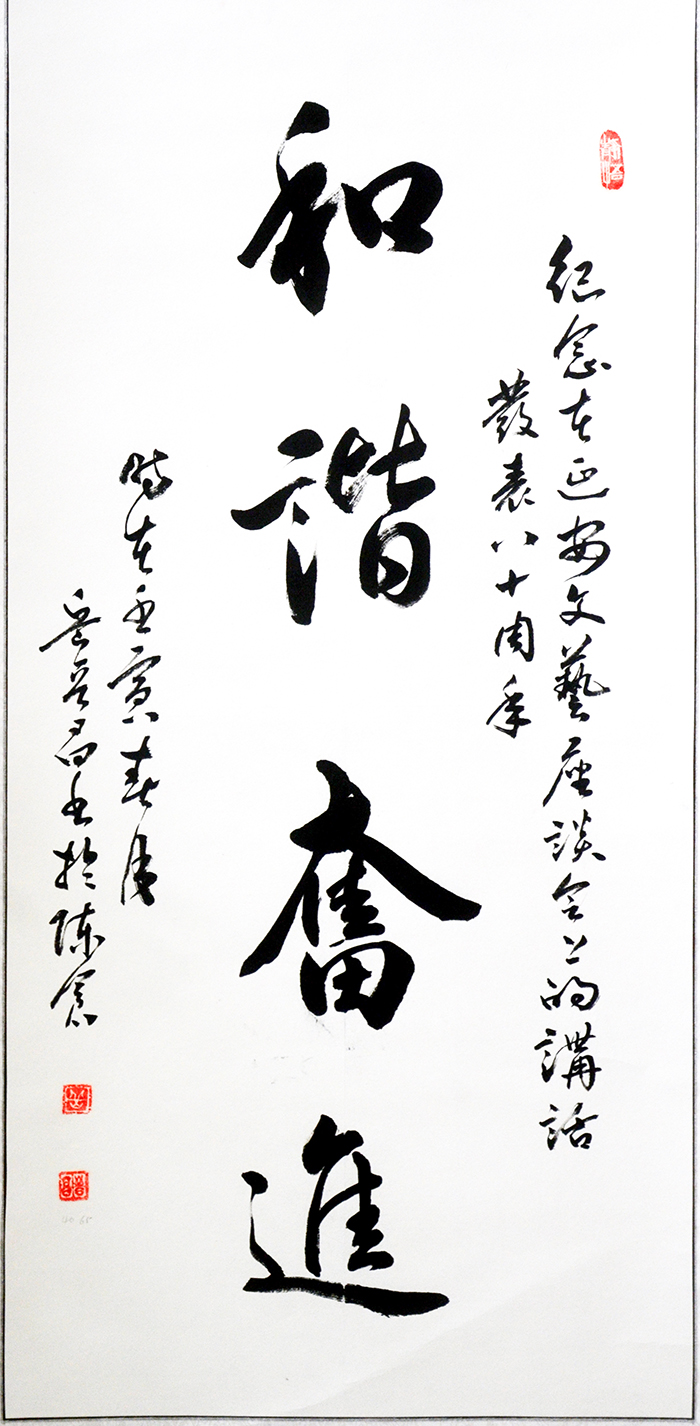 紀念在延安文藝座談会上的講話
發表八十周年
和諧奮進
時在壬寅春月
岳晋昌书於陳倉